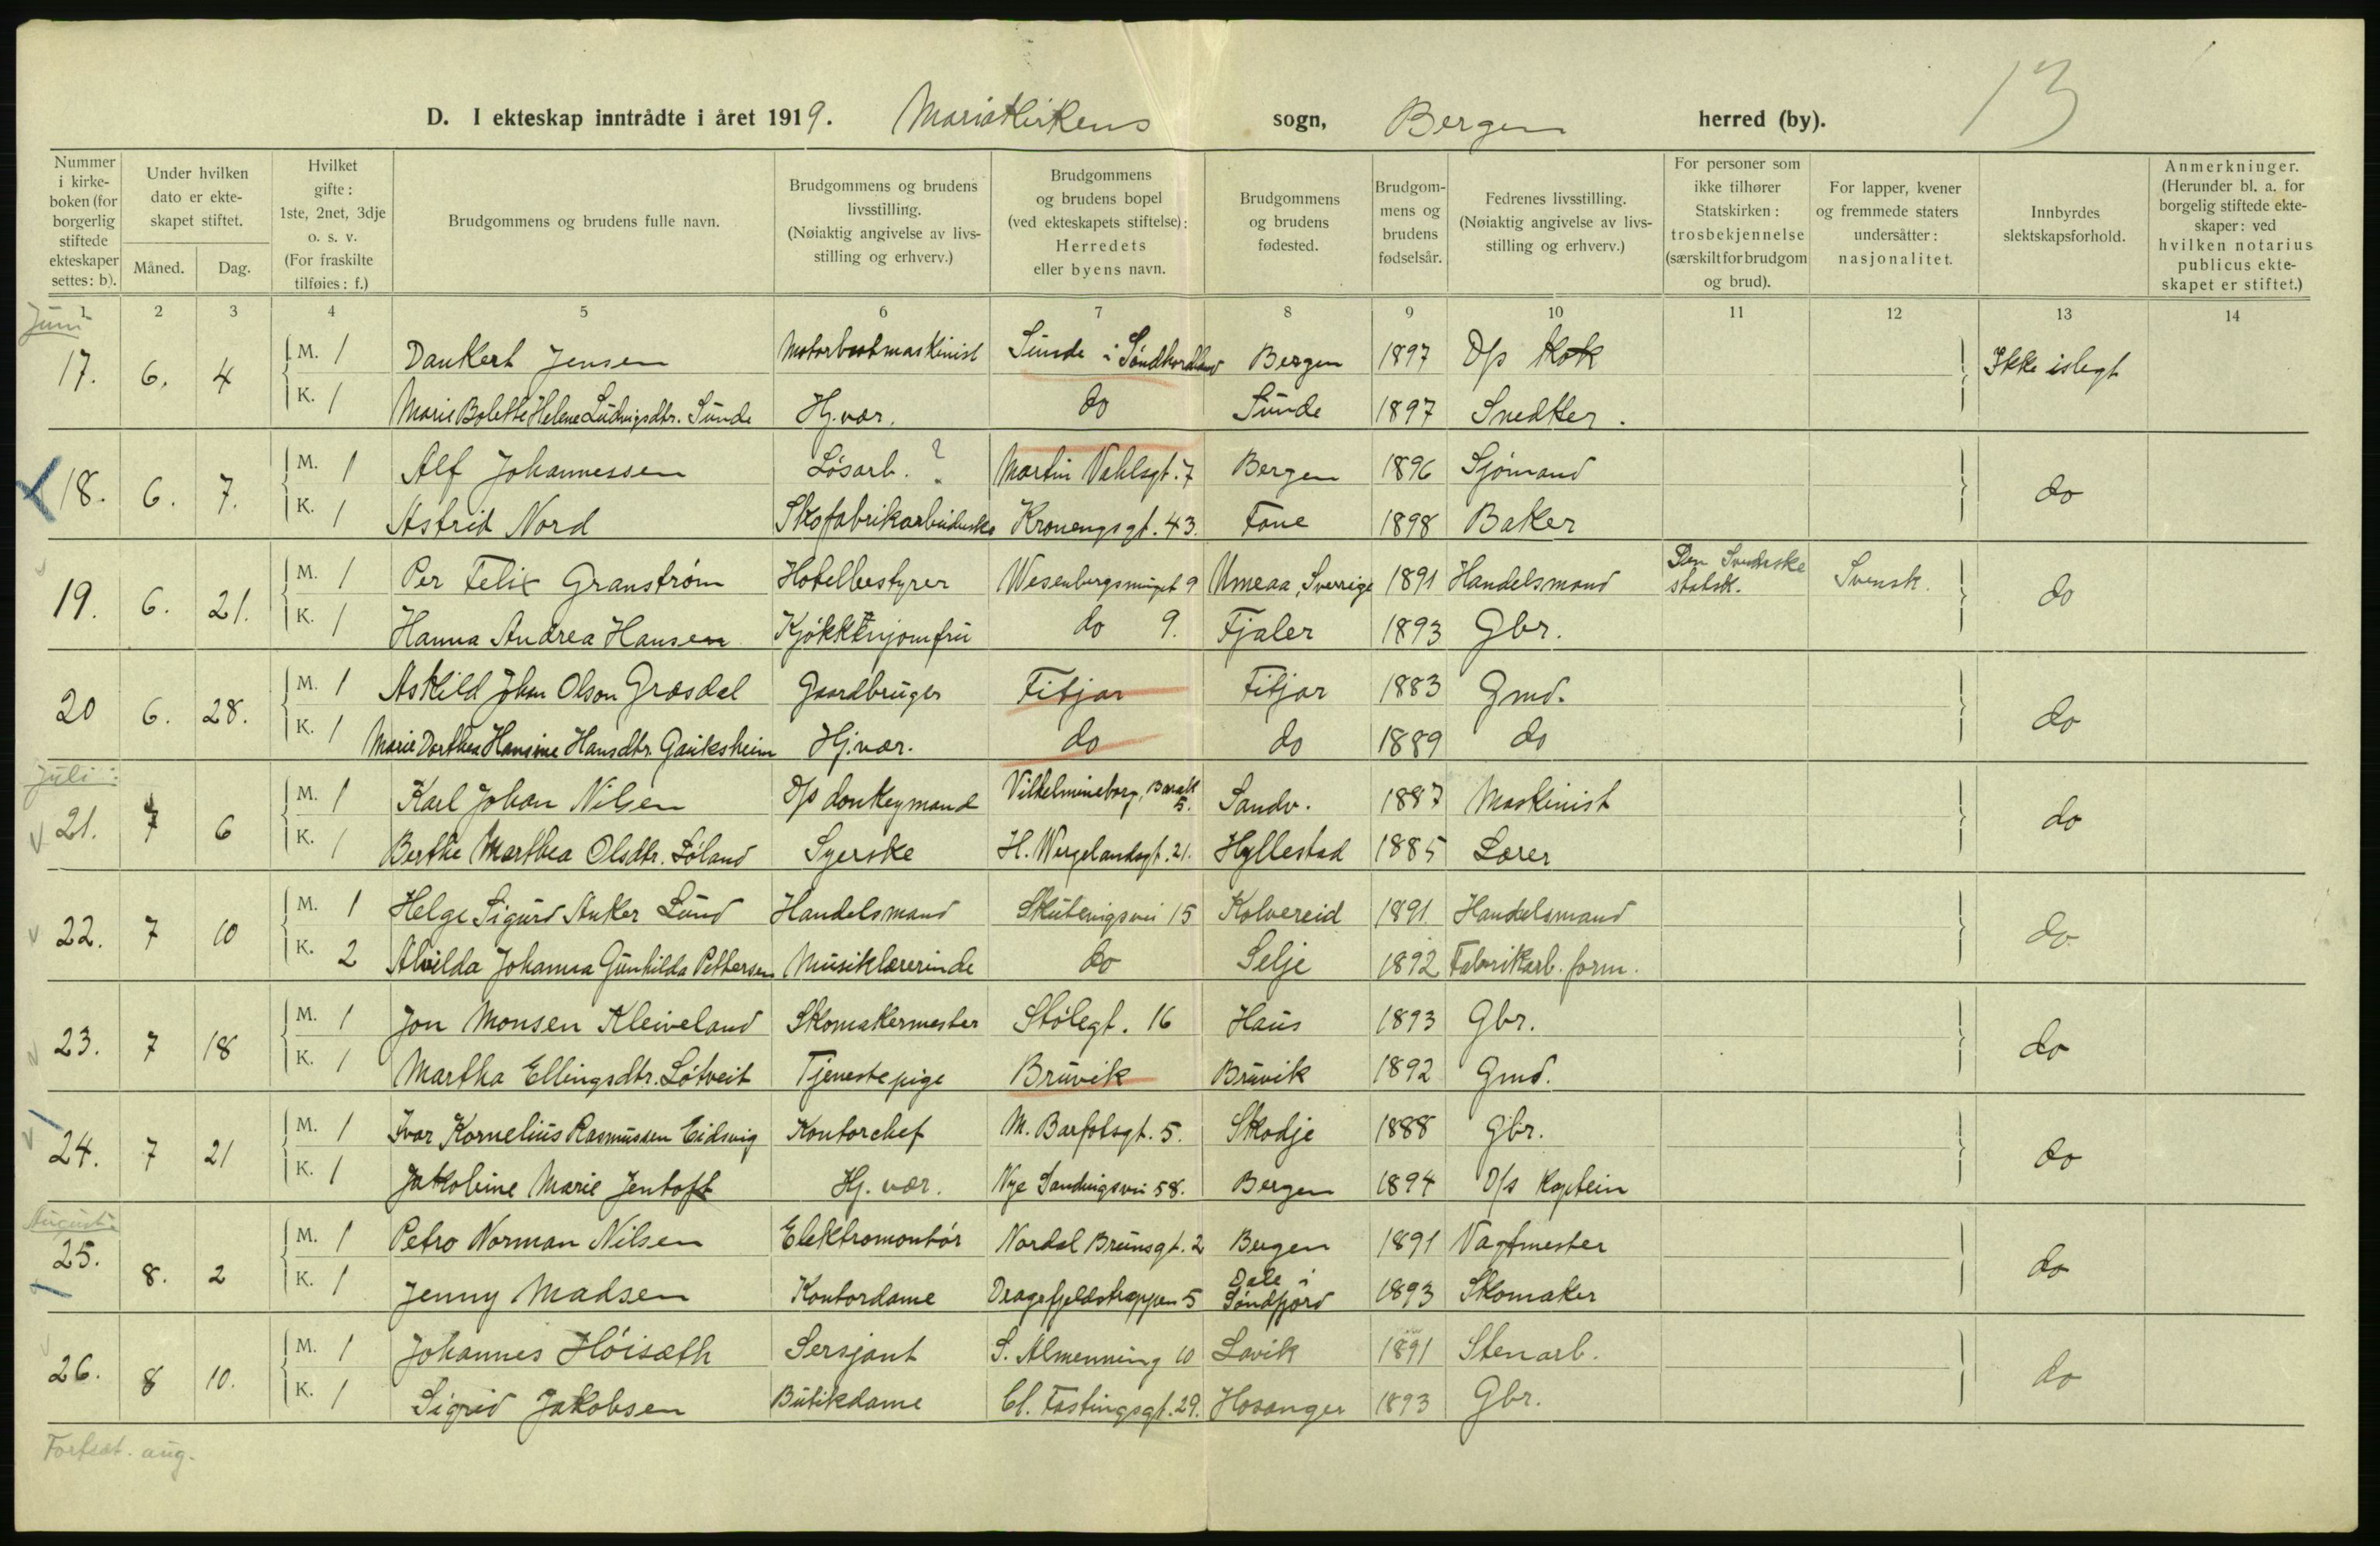 13
D. I ekteskap inntrådte i året 1919. Mariakirkens sogn, Bergen herred (by).
Nummer i kirkeboken (for borgerlig stiftede ekteskaper settes: b). | Under hvilken dato er ekteskapet stiftet. Måned. Dag. | Hvilket gifte: 1ste, 2net, 3dje o. s. v. (For fraskilte tilføies: f.) | Brudgommens og brudens fulle navn. | Brudgommens og brudens livsstilling. (Nøiaktig angivelse av livsstilling og erhverv.) | Brudgommens og brudens bopel (ved ekteskapets stiftelse): Herredets eller byens navn. | Brudgommens og brudens fødested. | Brudgommens og brudens fødselsår. | Fedrenes livsstilling. (Nøiaktig angivelse av livsstilling og erhverv.) | For personer som ikke tilhører Statskirken: trosbekjennelse (særskilt for brudgom og brud). | For lapper, kvener og fremmede staters undersåtter: nasjonalitet. | Innbyrdes slektskapsforhold. | Anmerkninger. (Herunder bl. a. for borgelig stiftede ekteskaper: ved hvilken notarius publicus ekteskapet er stiftet.)
1 2 3 4 5 6 7 8 9 10 11 12 13 14
Juni
17. 6. 4 M. 1 Dankert Jensen Motorbåtmaskinist Sunde i Søndhordland Bergen 1897 D/s kok Ikke islegt
K. 1 Marie Bolette Helene Ludvigsdtr. Sunde Hj. vær. do Sunde 1897 Snedker.
18. 6. 7. M. 1 Alf Johannessen Løsarb. ? Martin Vahlsgt. 7 Bergen 1896 Sjømand do
K. 1 Astrid Nord Skofabrikarbeiderske Kronengsgt. 43. Fane 1898 Baker
19. 6. 21. M. 1 Per Felix Granstrøm Hotelbestyrer Wesenbergsmuget 9 Umeaa, Sverrige 1891 Handelsmand Den Svenske statsk. Svensk. do
K. 1 Hanna Andrea Hansen Kjøkkenjomfru do 9. Fjaler 1893 Gbr.
20 6. 28. M. 1 Askild Johan Olson Græsdal Gaardbruger Fitjar Fitjar 1883 Gmd. do
K. 1 Marie Dorthea Hansine Hansdtr. Gauksheim Hj. vær. do do 1889 do
Juli:
21. 7 6 M. 1 Karl Johan Nilsen D/s donkeymand Vilhelmineborg, Barak 5. Sandv. 1887 Maskinist do
K. 1 Berthe Marthea Olsdtr. Løland Syerske H. Wergelandsgt. 21. Hyllestad 1885 Lærer
22. 7 10 M. 1 Helge Sigurd Anker Lund Handelsmand Skutevigsvei 15 Kolvereid 1891 Handelsmand do
K. 2 Alvilda Johanna Gunhilda Pettersen Musiklærerinde do Selje 1892 Fabrikarb. form.
23. 7 18 M. 1 Jon Monsen Kleiveland Skomakermester Stølegt. 16 Haus 1893 Gbr. do
K. 1 Martha Ellingsdtr. Løtveit Tjenestepige Bruvik Bruvik 1892 Gmd.
24. 7 21 M. 1 Ivar Kornelius Rasmussen Eidsvig Kontorchef M. Barfotsgt. 5. Skodje 1888 Gbr. do
K. 1 Jakobine Marie Jentoft Hj. vær. Nye Sandvigsvei 58. Bergen 1894 D/s kaptein
August:
25. 8. 2 M. 1 Petro Norman Nilsen Elektromontør Nordal Brunsgt. 2 Bergen 1891 Vagtmester do
K. 1 Jenny Madsen Kontordame Dragefjeldstrappen 5 Dale i Søndfjord 1893 Skomaker
26. 8 10. M. 1 Johannes Høisæth Sersjant S. Almenning 10 Lavik 1891 Stenarb. do
K. 1 Sigrid Jakobsen Butikdame Cl. Fastingsgt. 29. Hosanger 1893 Gbr.
Fortsat. aug.